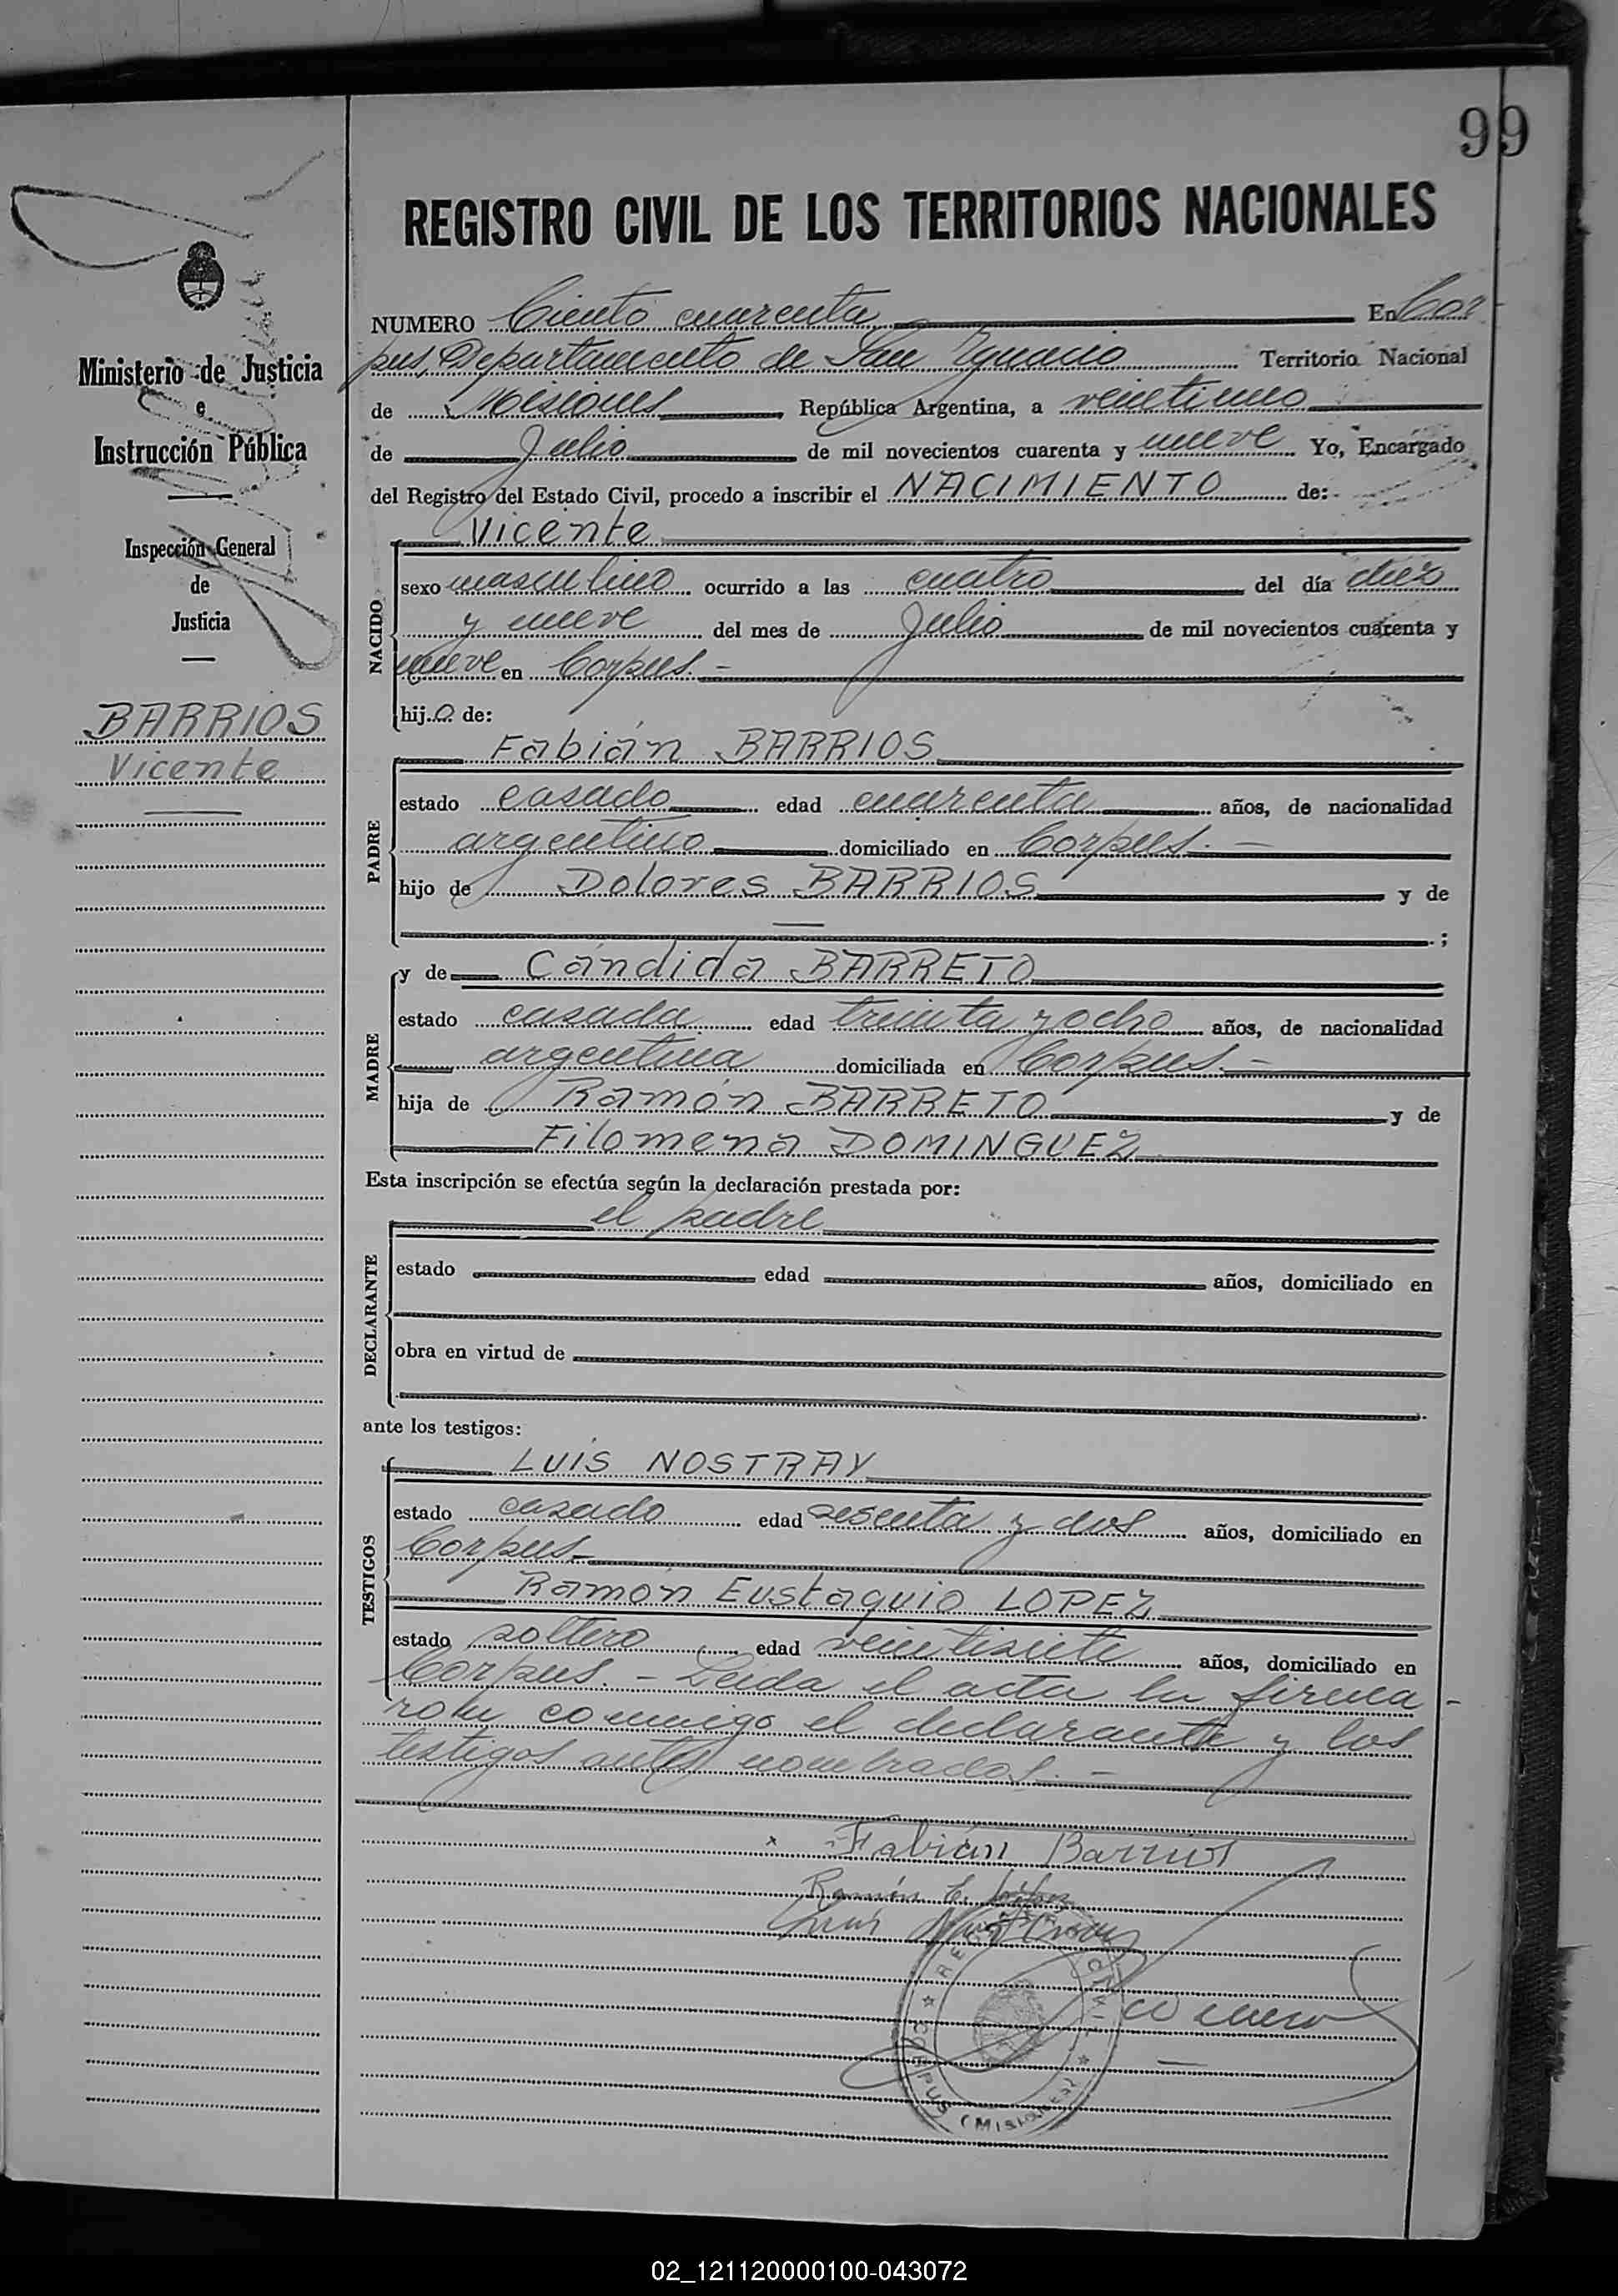 99
REGISTRO CIVIL DE LOS TERRITORIOS NACIONALES
Ministerio de Justicia
e
Instrucción Pública
Inspección General
de
Justicia
BARRIOS
Vicente
NUMERO Ciento cuarenta En Cor-
pus, Departamento de San Ygnacio Territorio Nacional
de Misiones, República Argentina, a veintiuno
de Julio de mil novecientos cuarenta y nueve Yo, Encargado
del Registro del Estado Civil, procedo a inscribir el NACIMIENTO de:
NACIDO
Vicente
sexo masculino ocurrido a las cuatro del día diez
y nueve del mes de Julio de mil novecientos cuarenta y
nueve en Corpus.-
hijo de:
PADRE
Fabián BARRIOS
estado casado edad cuarenta años, de nacionalidad
argentino domiciliado en Corpus.-
hijo de Dolores BARRIOS y de
— ;
MADRE
y de Cándida BARRETO
estado casada edad treinta y ocho años, de nacionalidad
argentina domiciliada en Corpus.-
hija de Ramón BARRETO y de
Filomena DOMINGUEZ
Esta inscripción se efectúa según la declaración prestada por:
DECLARANTE
el padre
estado edad años, domiciliado en
obra en virtud de
ante los testigos:
TESTIGOS
LUIS NOSTRAY
estado casado edad sesenta y dos años, domiciliado en
Corpus-
Ramón Eustaquio LOPEZ
estado soltero edad veintisiete años, domiciliado en
Corpus.- Leída el acta la firma-
ron conmigo el declarante y los
testigos antes nombrados.-
Fabián Barrios
Ramón E. López
Luis
REGISTRO CIVIL * CORPUS (MISIONES) *
02_121120000100-043072